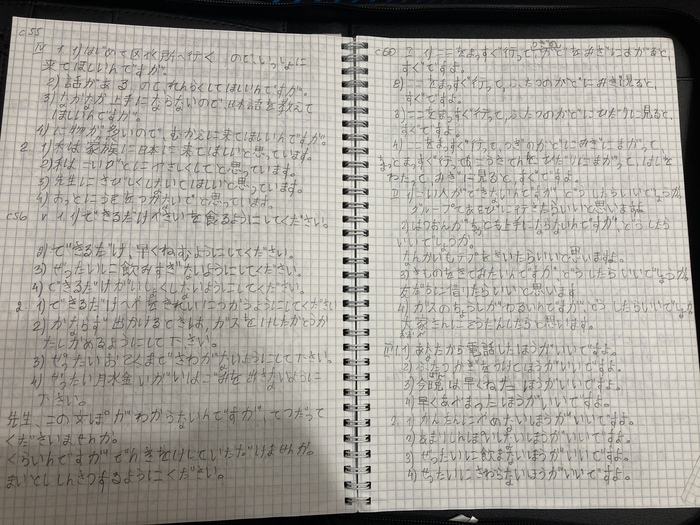 c55
IV 1. 1) はじめて区役所へ行く ので、いっしょに
来てほしいんですが。
2) 話がある ので、れんらくしてほしいんですが。
3) 上手にならないので、日本語を教えて
ほしいんですが。
4) に物が多いので、むかえに来てほしいんですが。
2. 1) 家族に日本に来てほしいと思っています。
2) やさしくして と思っています。
3) 先生に ほしいと思っています。
4) と思っています。
c56 V 1. 1) できるだけやさいを食るようにしてください。
2) できるだけ、早くねむようにしてください。
3) ぜったいに飲みすぎないようにしてください。
4) できるだけ ようにしてください。
2. 1) できるだけへやをきれいにつかうようにしてください
2) かならず出かけるときは、ガスをけしたかどうか
たしかめるようにして下さい。
3) ぜったいおそくまでさわがないようにして下さい。
4) ぜったい月水金いがいはごみを出さないように
下さい。
先生、この文ぽがわからないんですが、てつだって
くださいませんか。
くらいんですがでんきをけしていただけませんか。
ようにください。
c60 II 1) ここをまっすぐ行って、 かどをみぎにまがると、
すぐですよ。
2) ここをまっすぐ行って、ふたつのかどにみぎ見ると、
すぐですよ。
3) ここをまっすぐ行って、ふたつのかどにひだりに見ると、
すぐですよ。
4) ここをまっすぐ行って、つぎのかどにみぎにまがって、
まっすぐ行って、 ひだりにまがって、はしを
わたって、みぎに見ると、すぐですよ。
II 1) 人ができないんですが、どうしたらいいでしょうか。
グループであそびに行きたらいいと思いますよ
2) はつおんがとても上手にならないんですが、どうしたら
いいでしょうか。
なんかいもテプをきいたらいいと思いますよ。
3) きものをきてみたいんですが、どうしたらいいでしょうか
友だちに借りたらいいと思います
4) ガスのちょうしがわるいんですが、どうしたらいいでしょうか
大家さんにそうだんしたらと思います。
III 1. 1) あなたから電話したほうがいいですよ。
2) かぎをつけてほうがいいですよ。
3) 今晩は早くねた ほうがいいですよ。
4) 早くあやまったほうがいいですよ。
2. 1) かんたんにやめないほうがいいですよ。
2) あまりしんぱいしないほうがいいですよ。
3) ぜったいに飲まないほうがいいですよ。
4) ぜったいにさわらないほうがいいですよ。